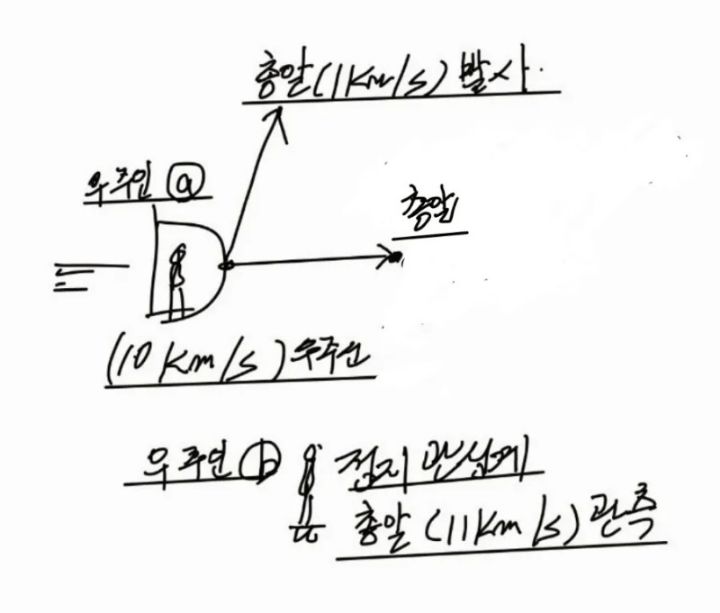 총알(1km/s) 발사.
우주인 ⓐ
총알
(10km/s)우주선
우주인 ⓑ 정지 관성계
총알 (11km/s) 관측